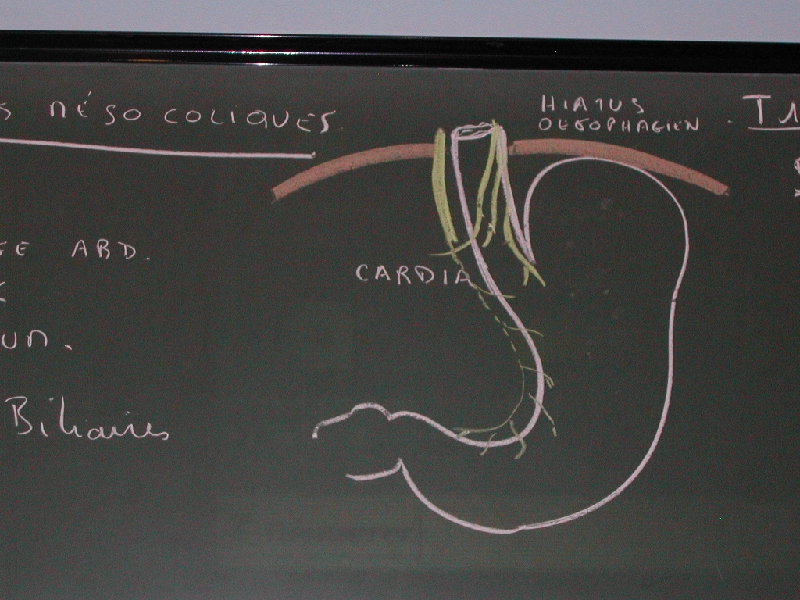 S MÉSO COLIQUES
HIATUS
OESOPHAGIEN
T1
GE ABD.
CARDIA
UN.
Biliaires